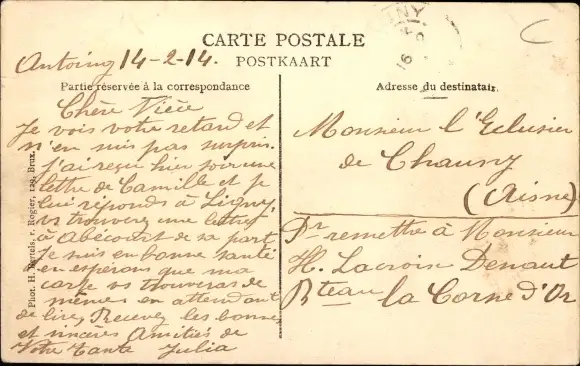 CARTE POSTALE
POSTKAART
Antoing 14-2-14.
Partie réservée à la correspondance
Adresse du destinataire.
Chère Nièce
Je vois votre retard et
n'en suis pas surpris.
J'ai reçu hier soir une
lettre de Camille et je
lui réponds à Ligny,
vs trouverez une lettre
à Abécourt de sa part
Je suis en bonne santé
en espérons que ma
carte vs trouveras de
mêmes en attendant
de lire, Recevez les bonnes
et sincères Amitiés de
Votre tante Julia
Monsieur l'Eclusier
de Chauny
(Aisne)
Pr remettre à Monsieur
H. Lacroix Denaut
Bteau la Corne d'Or
Phot. H. Bertels, r. Rogier, 129, Brux.